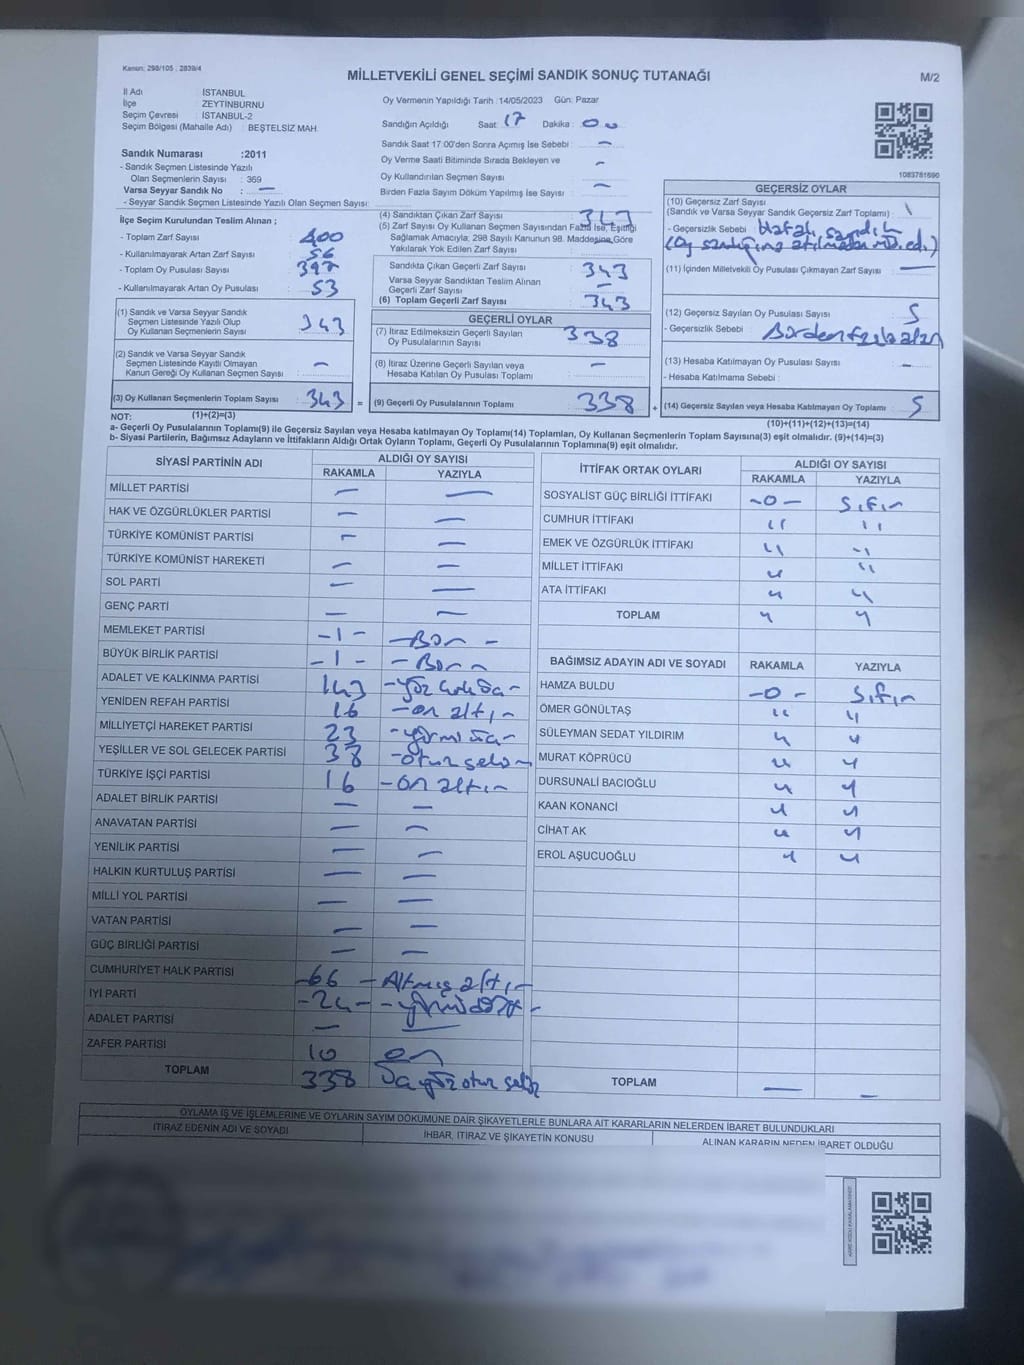 Kanun: 298/105 ; 2839/4
MİLLETVEKİLİ GENEL SEÇİMİ SANDIK SONUÇ TUTANAĞI
M/2
İl Adı : İSTANBUL
İlçe : ZEYTİNBURNU
Seçim Çevresi : İSTANBUL-2
Seçim Bölgesi (Mahalle Adı) : BEŞTELSİZ MAH.
Sandık Numarası :2011
- Sandık Seçmen Listesinde Yazılı
Olan Seçmenlerin Sayısı : 369
Varsa Seyyar Sandık No : —
- Seyyar Sandık Seçmen Listesinde Yazılı Olan Seçmen Sayısı:
Oy Vermenin Yapıldığı Tarih :14/05/2023 Gün: Pazar
Sandığın Açıldığı Saat: 17 Dakika : 00
Sandık Saat 17:00'den Sonra Açmış İse Sebebi : —
Oy Verme Saati Bitiminde Sırada Bekleyen ve —
Oy Kullandırılan Seçmen Sayısı
Birden Fazla Sayım Döküm Yapılmış İse Sayısı : —
1083781690
İlçe Seçim Kurulundan Teslim Alınan ;
- Toplam Zarf Sayısı : 400
- Kullanılmayarak Artan Zarf Sayısı : 56
- Toplam Oy Pusulası Sayısı :
- Kullanılmayarak Artan Oy Pusulası : 53
(1) Sandık ve Varsa Seyyar Sandık
Seçmen Listesinde Yazılı Olup
Oy Kullanan Seçmenlerin Sayısı : 343
(2) Sandık ve Varsa Seyyar Sandık
Seçmen Listesinde Kayıtlı Olmayan
Kanun Gereği Oy Kullanan Seçmen Sayısı : —
(3) Oy Kullanan Seçmenlerin Toplam Sayısı : 343 =
(4) Sandıktan Çıkan Zarf Sayısı : 343
(5) Zarf Sayısı Oy Kullanan Seçmen Sayısından Fazla İse, Eşitliği
Sağlamak Amacıyla; 298 Sayılı Kanunun 98. Maddesine Göre
Yakılarak Yok Edilen Zarf Sayısı
Sandıkta Çıkan Geçerli Zarf Sayısı : 343
Varsa Seyyar Sandıktan Teslim Alınan
Geçerli Zarf Sayısı : —
(6) Toplam Geçerli Zarf Sayısı : 343
GEÇERLİ OYLAR
(7) İtiraz Edilmeksizin Geçerli Sayılan
Oy Pusulalarının Sayısı : 338
(8) İtiraz Üzerine Geçerli Sayılan veya
Hesaba Katılan Oy Pusulası Toplamı : —
(9) Geçerli Oy Pusulalarının Toplamı : 338 +
GEÇERSİZ OYLAR
(10) Geçersiz Zarf Sayısı
(Sandık ve Varsa Seyyar Sandık Geçersiz Zarf Toplamı) : \
- Geçersizlik Sebebi : Hatalı sandık
(11) İçinden Milletvekili Oy Pusulası Çıkmayan Zarf Sayısı : —
(12) Geçersiz Sayılan Oy Pusulası Sayısı : 5
- Geçersizlik Sebebi :
(13) Hesaba Katılmayan Oy Pusulası Sayısı : —
- Hesaba Katılmama Sebebi :
(14) Geçersiz Sayılan veya Hesaba Katılmayan Oy Toplamı : 5
NOT: (1)+(2)=(3)
(10)+(11)+(12)+(13)=(14)
a- Geçerli Oy Pusulalarının Toplamı(9) ile Geçersiz Sayılan veya Hesaba katılmayan Oy Toplamı(14) Toplamları, Oy Kullanan Seçmenlerin Toplam Sayısına(3) eşit olmalıdır. (9)+(14)=(3)
b- Siyasi Partilerin, Bağımsız Adayların ve İttifakların Aldığı Ortak Oyların Toplamı, Geçerli Oy Pusulalarının Toplamına(9) eşit olmalıdır.
SİYASİ PARTİNİN ADI ALDIĞI OY SAYISI
RAKAMLA YAZIYLA
MİLLET PARTİSİ — —
HAK VE ÖZGÜRLÜKLER PARTİSİ — —
TÜRKİYE KOMÜNİST PARTİSİ — —
TÜRKİYE KOMÜNİST HAREKETİ — —
SOL PARTİ — —
GENÇ PARTİ — —
MEMLEKET PARTİSİ -1- -Bir-
BÜYÜK BİRLİK PARTİSİ -1- -Bir
ADALET VE KALKINMA PARTİSİ 143 -yüz kırk üç-
YENİDEN REFAH PARTİSİ 16 -on altı-
MİLLİYETÇİ HAREKET PARTİSİ 23 -yirmi üç-
YEŞİLLER VE SOL GELECEK PARTİSİ 38 -otuz sekiz-
TÜRKİYE İŞÇİ PARTİSİ 16 -on altı-
ADALET BİRLİK PARTİSİ — —
ANAVATAN PARTİSİ — —
YENİLİK PARTİSİ — —
HALKIN KURTULUŞ PARTİSİ — —
MİLLİ YOL PARTİSİ — —
VATAN PARTİSİ — —
GÜÇ BİRLİĞİ PARTİSİ — —
CUMHURİYET HALK PARTİSİ -66 -Altmış altı-
İYİ PARTİ -24- -yirmi dört-
ADALET PARTİSİ — —
ZAFER PARTİSİ 10 on
TOPLAM 338 üç yüz otuz sekiz
İTTİFAK ORTAK OYLARI ALDIĞI OY SAYISI
RAKAMLA YAZIYLA
SOSYALİST GÜÇ BİRLİĞİ İTTİFAKI -0- Sıfır
CUMHUR İTTİFAKI " "
EMEK VE ÖZGÜRLÜK İTTİFAKI " "
MİLLET İTTİFAKI " "
ATA İTTİFAKI " "
TOPLAM " "
BAĞIMSIZ ADAYIN ADI VE SOYADI RAKAMLA YAZIYLA
HAMZA BULDU -0- Sıfır
ÖMER GÖNÜLTAŞ " "
SÜLEYMAN SEDAT YILDIRIM " "
MURAT KÖPRÜCÜ " "
DURSUNALİ BACIOĞLU " "
KAAN KONANCİ " "
CİHAT AK " "
EROL AŞUCUOĞLU " "
TOPLAM — —
OYLAMA İŞ VE İŞLEMLERİNE VE OYLARIN SAYIM DÖKÜMÜNE DAİR ŞİKAYETLERLE BUNLARA AİT KARARLARIN NELERDEN İBARET BULUNDUKLARI
İTİRAZ EDENİN ADI VE SOYADI İHBAR, İTİRAZ VE ŞİKAYETİN KONUSU ALINAN KARARIN NEDEN İBARET OLDUĞU